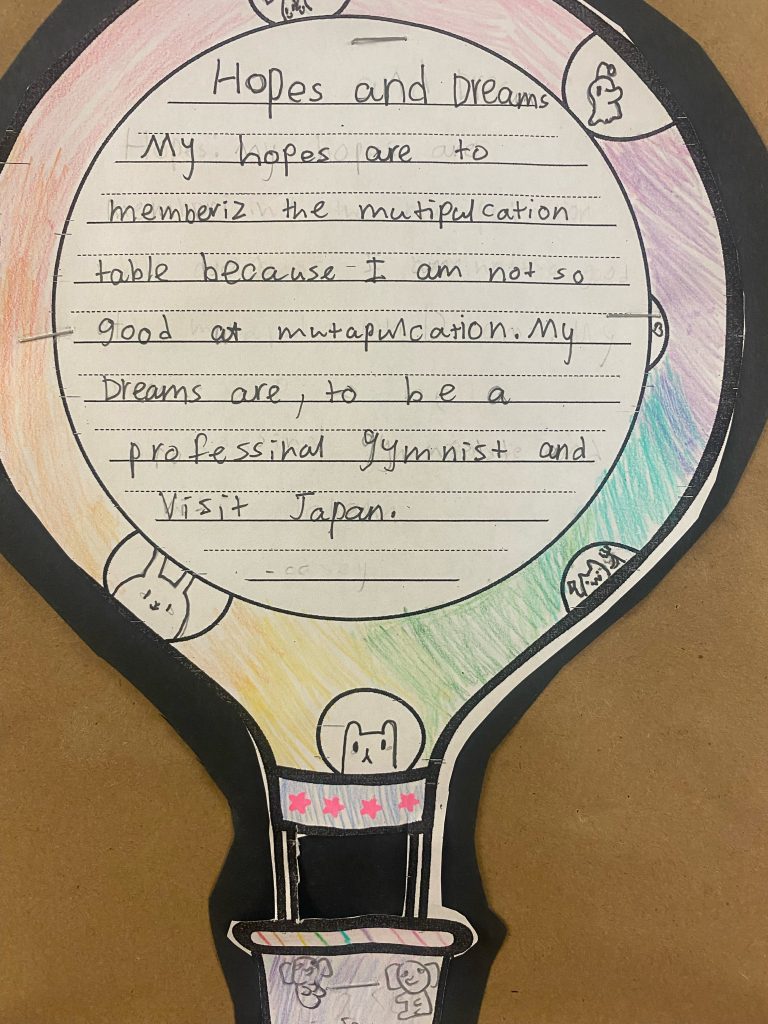 Hopes and Dreams
My hopes are to
memberiz the mutipulcation
table because I am not so
good at mutapulcation. My
Dreams are, to be a
professinal gymnist and
Visit Japan.